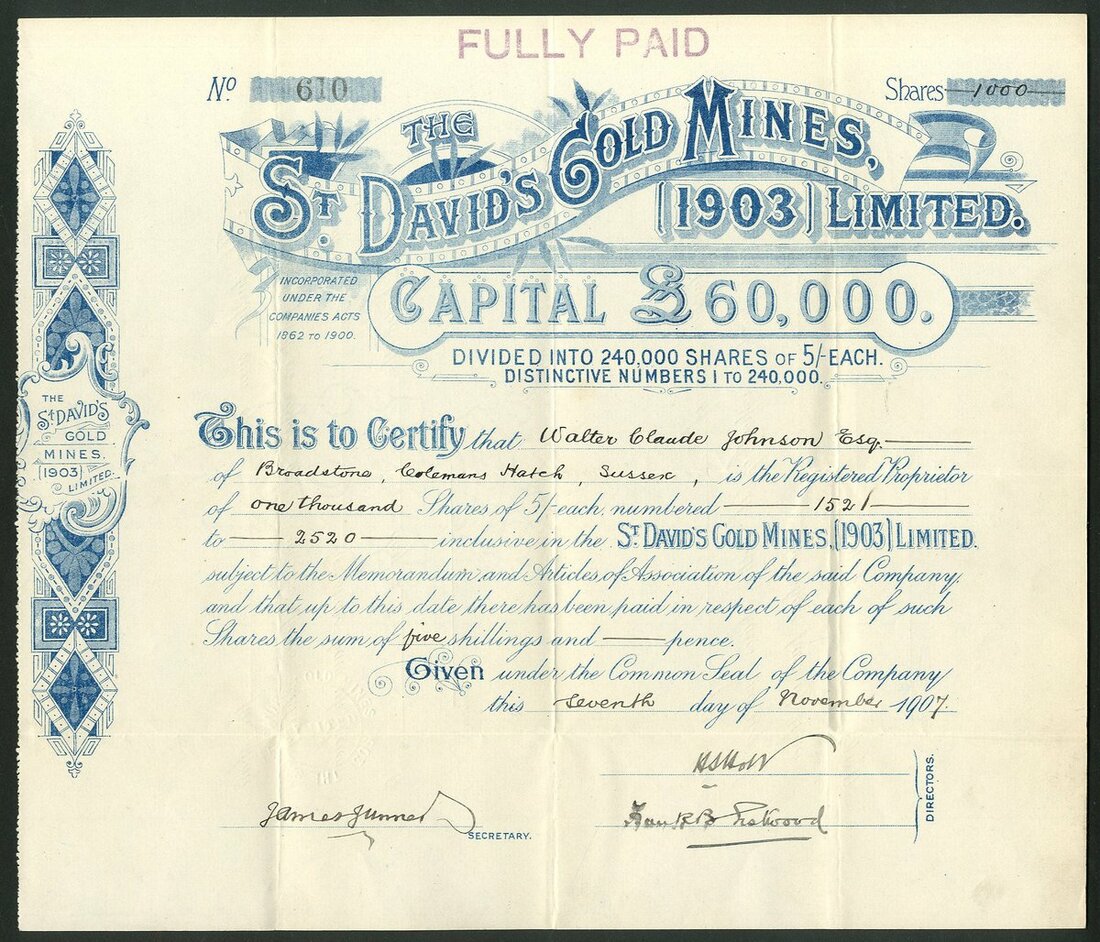 FULLY PAID
No 610
Shares 1000
THE
ST. DAVID'S GOLD MINES,
(1903) LIMITED.
INCORPORATED
UNDER THE
COMPANIES ACTS
1862 TO 1900.
CAPITAL £60,000.
DIVIDED INTO 240,000 SHARES OF 5/- EACH.
DISTINCTIVE NUMBERS 1 TO 240,000.
THE
ST DAVID'S
GOLD
MINES,
(1903)
LIMITED.
This is to Certify that Walter Claude Johnson Esq.
of Broadstone, Colemans Hatch, Sussex, is the Registered Proprietor
of one thousand Shares of 5/- each, numbered 1521
to 2520 inclusive, in the ST. DAVID'S GOLD MINES, (1903) LIMITED.
subject to the Memorandum and Articles of Association of the said Company,
and that up to this date there has been paid in respect of each of such
Shares the sum of five shillings and pence.
Given under the Common Seal of the Company
this seventh day of November 1907.
DIRECTORS.
James
SECRETARY.